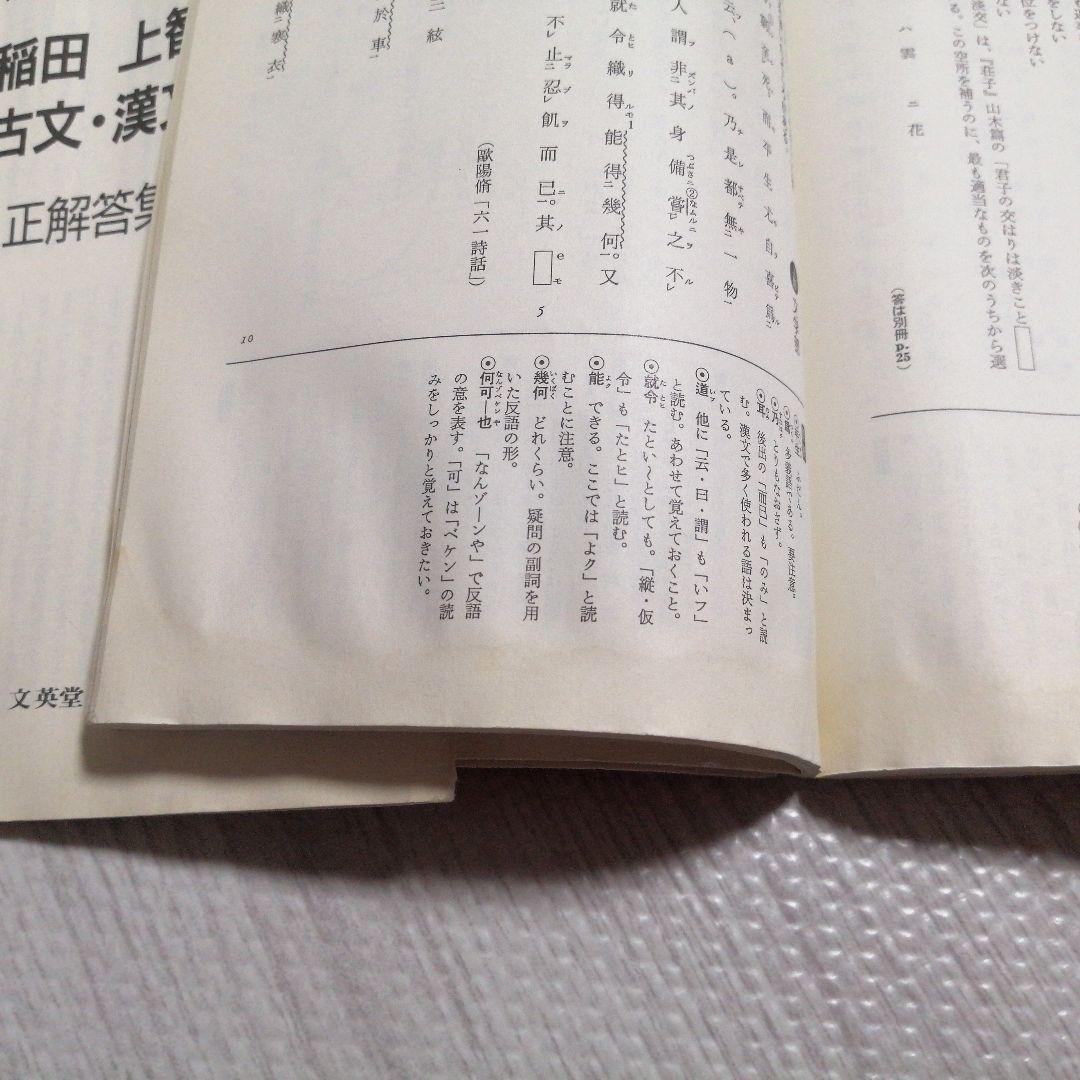 をしない
位をつけない
ない
淡交」は、『荘子』山木篇の「君子の交はりは淡きこと□
る。この空所を補うのに、最も適当なものを次のうちから選
ハ 雲 ニ 花
(答は別冊 p.25)
(a)。乃是都無一物
人謂非其身備②嘗之不
就令織得能得幾何。又 1
不止忍飢而已。其□ e
5
(歐陽脩「六一詩話」)
三絃
於車
織裏衣
10
多義語である。要注意。
乃 とりもなおさず。
耳 後出の「而已」も「のみ」と読
む。漢文で多く使われる語は決まっ
ている。
道 他に「云・曰・謂」も「いフ」
と読む。あわせて覚えておくこと。
就令 たとい〜としても。「縦・仮
令」も「たとヒ」と読む。
能 できる。ここでは「よク」と読
むことに注意。
幾何 どれくらい。疑問の副詞を用
いた反語の形。
何可―也 「なんゾ―ンや」で反語
の意を表す。「可」は「ベケン」の読
みをしっかりと覚えておきたい。
稲田 上智
古文・漢文
正解答集
文英堂